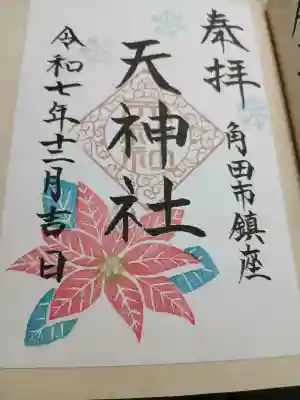 奉拝
角田市鎮座
天神社
令和七年十二月吉日